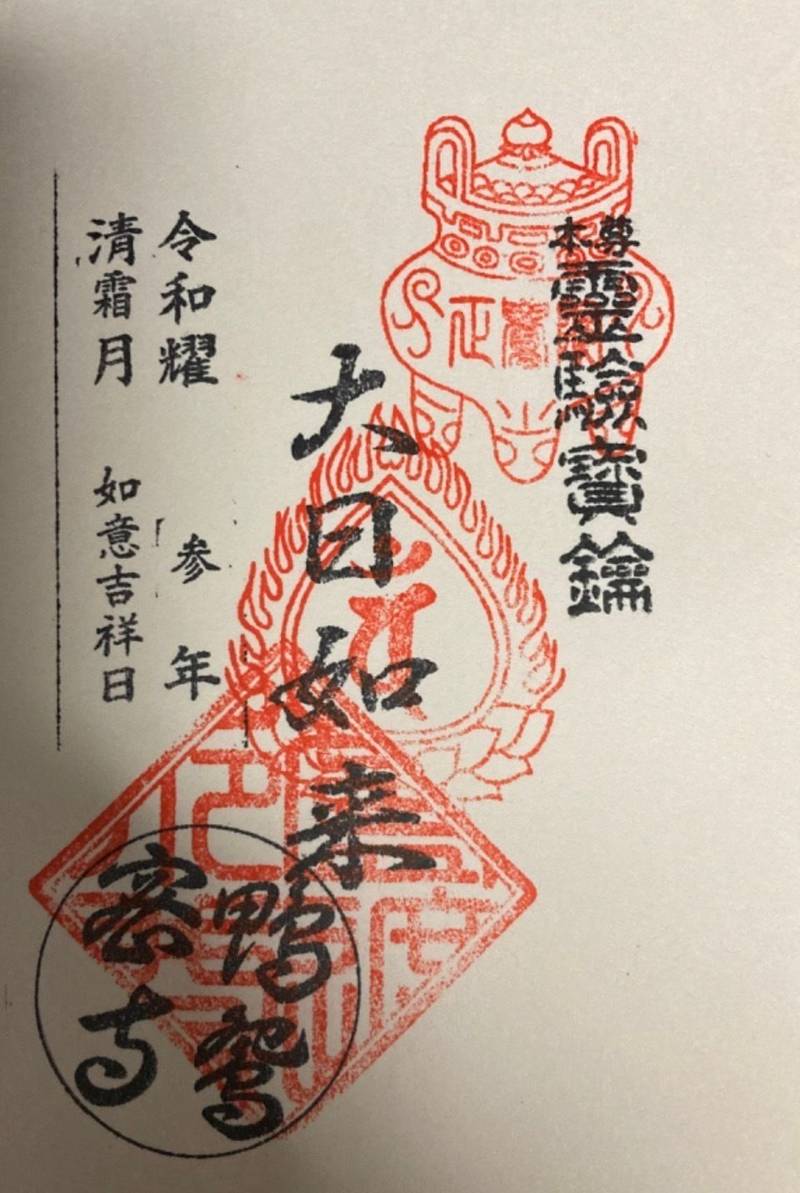 本尊
靈驗寶鑰
大日如来
令和耀 参年
清霜月 如意吉祥日
鴨鴛
密寺